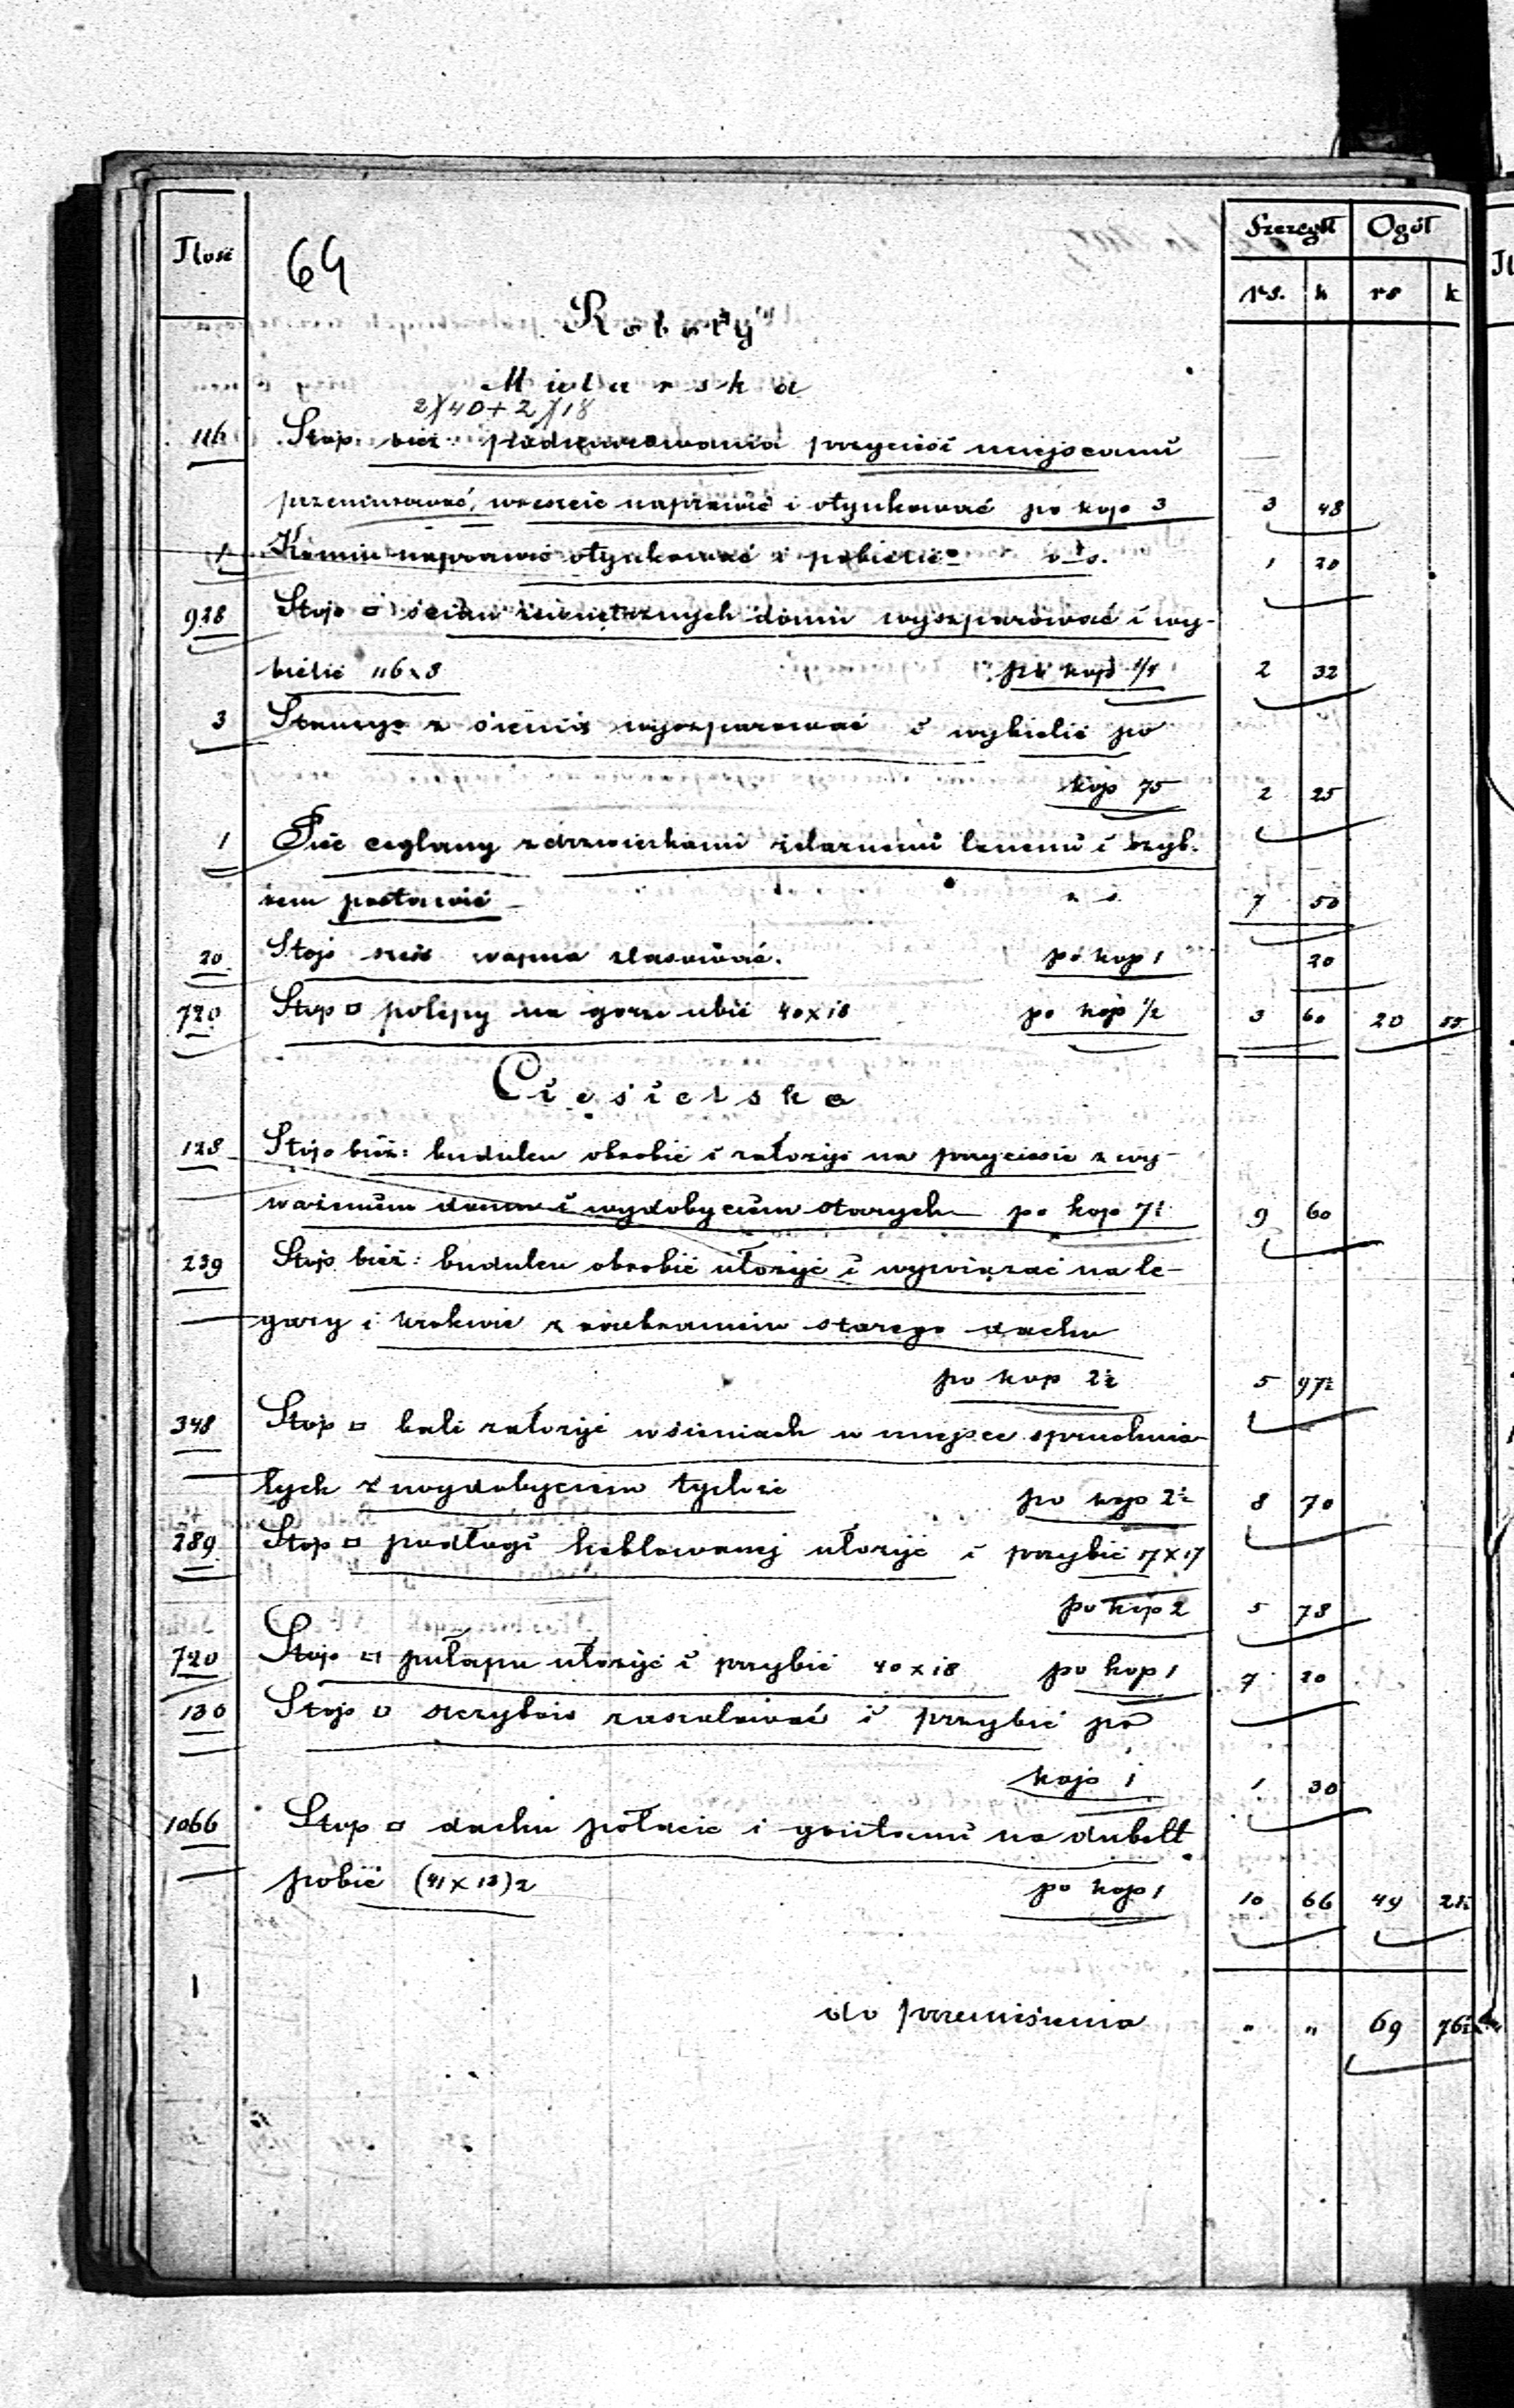 Ilość 64 Szczegół Ogół
rs. k rs k
Roboty
Mularska
2)(40+2)(18
116 Stop. bież: podmurowania przyciesi miejscami
przemurować, wreszcie naprawić i otynkować po kop 3 3 48
1 Komin naprawić otynkować i pobielić 1 20
928 Stop □ ścian zewnętrznych domu wyszparować i wy-
bielić 116x8 po kop 1/4 2 32
3 Stancye z sienią wyszparować i wybielić po
kop 75 2 25
1 Piec ceglany z drzwiczkami żelaznemi lanemi i szyb-
rem postawić 7 50
20 Stop sześ wapna zlasować. po kop 1 20
720 Stop □ polepy na górze ubić 40x18 po kop 1/2 3 60 20 55
Ciesielska
128 Stop bież: budulcu obrobić i założyć na przyciesie z wy-
ważeniem domu i wydobyciem starych po kop 7½ 9 60
239 Stop bież: budulcu obrobić ułożyć i wywiązać na le-
gary i krokwie z rozebraniem starego dachu
po kop 2½ 5 97½
348 Stop □ bali założyć w sieniach w miejsce spruchnia-
łych z wydobyciem tychże po kop 2½ 8 70
289 Stop □ podłogi heblowanej ułożyć i przybić 17x17
po kop 2 5 78
720 Stop □ pułapu ułożyć i przybić 40x18 po kop 1 7 20
130 Stop □ szczytów zaszalować i przybić po
kop 1 1 30
1066 Stop □ dachu połacić i gontami na dubelt
pobić (41x13)2 po kop 1 10 66 49 21½
do przeniesienia " " 69 76½